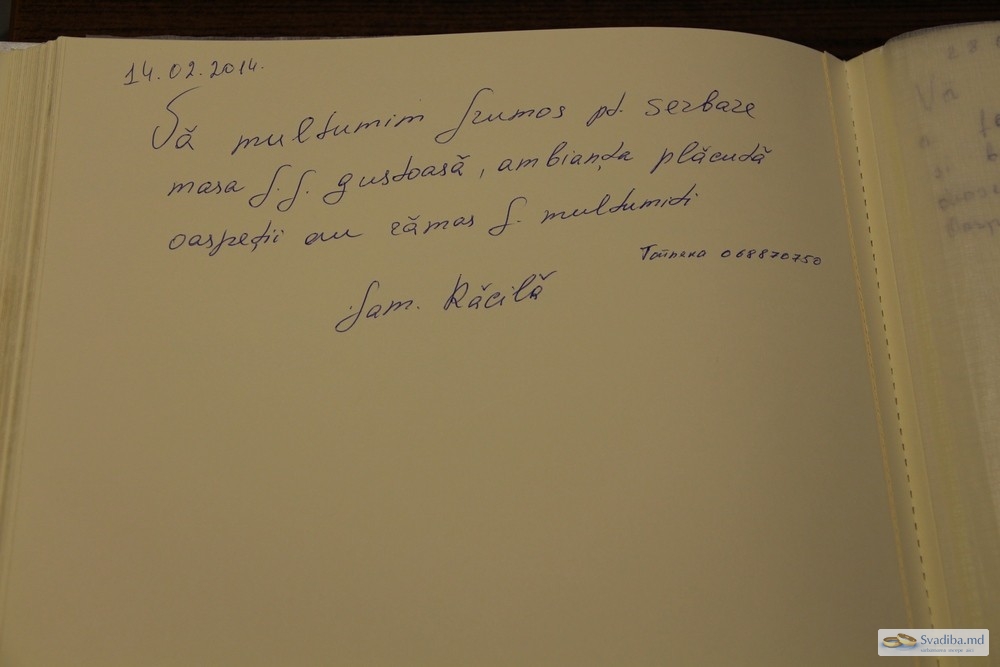 14.02.2014.
Vă multumim frumos pt. serbare
masa f.f. gustoasă, ambianța plăcută
oaspeții au rămas f. multumiti
Татьяна 068870750
fam. Răcilă
Svadiba.md